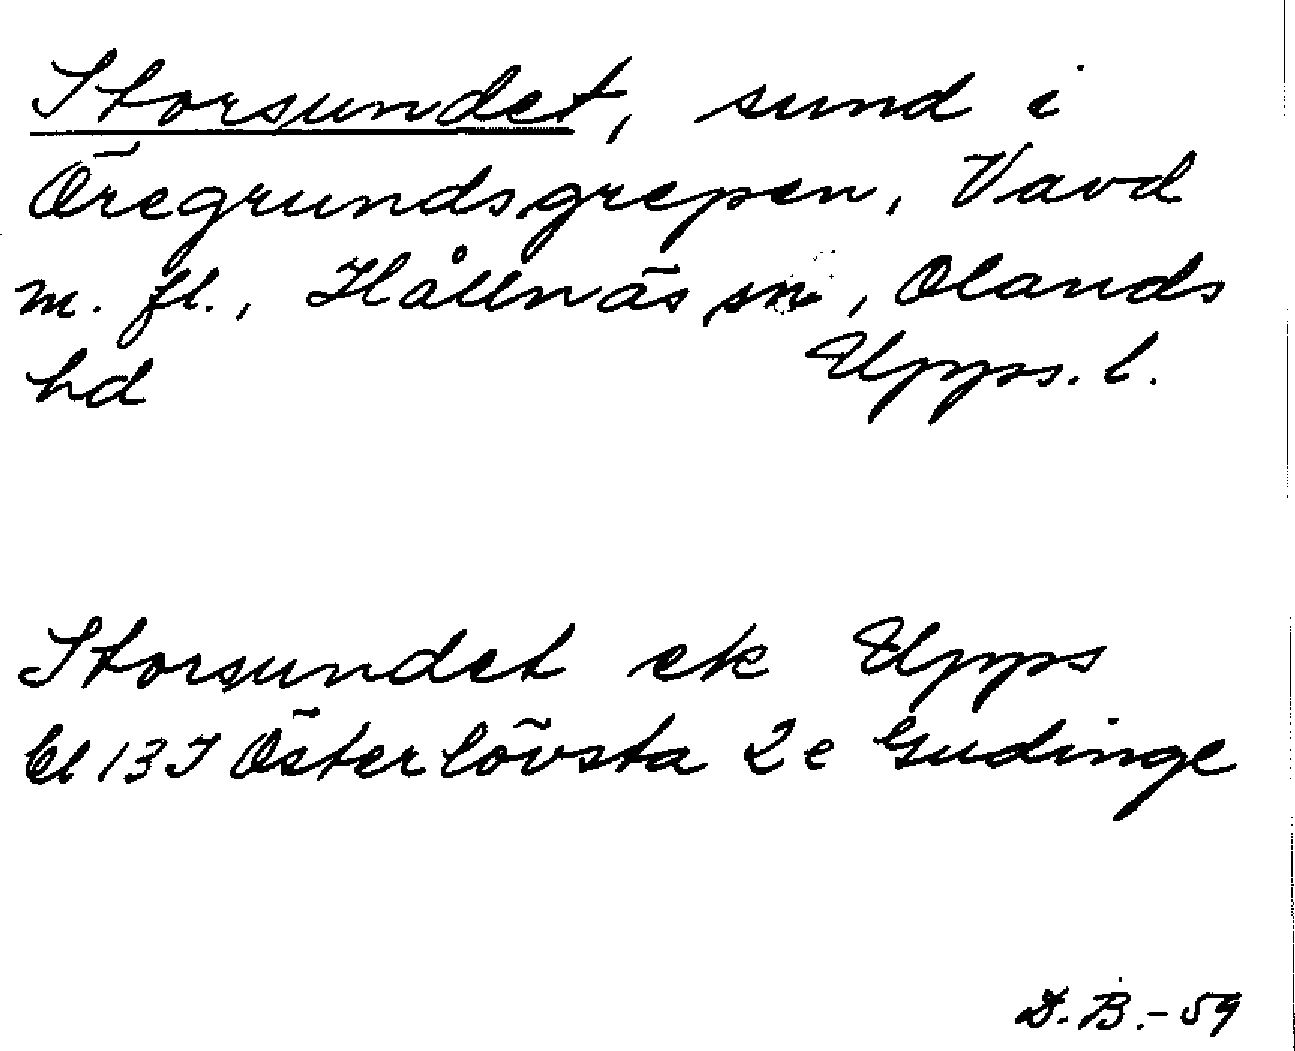 Storsundet, sund i
Öregrundsgrepen, Vavd
m. fl., Hållnäs sn, Olands
hd Upps. l.
Storsundet ek Upps
bl 13 I Österlövsta 2e Gudinge
D. B. - 59